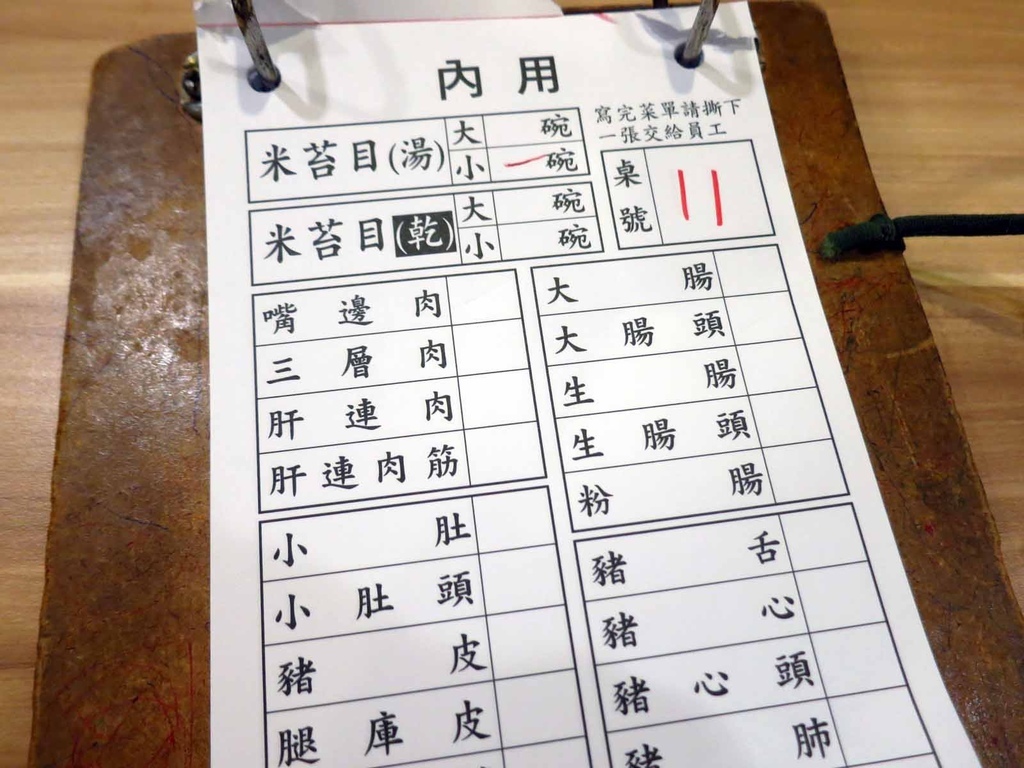 內用
寫完菜單請撕下
一張交給員工
米苔目(湯) 大 碗
小 一 碗
米苔目(乾) 大 碗
小 碗
桌號 11
嘴邊肉
三層肉
肝連肉
肝連肉筋
大腸
大腸頭
生腸
生腸頭
粉腸
小肚
小肚頭
豬皮
腿庫皮
豬舌
豬心
豬心頭
豬肺